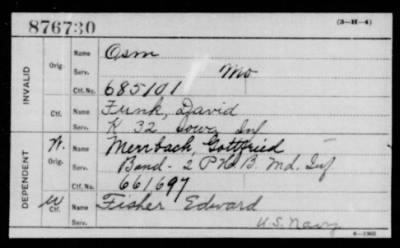 876730 (3-H-4)
INVALID
Orig. Name Osm
Serv. Mo
Ctf. No. 685101
Ctf. Name Funk, David
Serv. K 32 Iowa Inf
DEPENDENT
W. Orig. Name Merrbach, Gottfried
Serv. Band - 2 P.H.B. Md. Inf
Ctf. No. 661697
Ctf. Name Fisher Edward
Serv. U.S. Navy